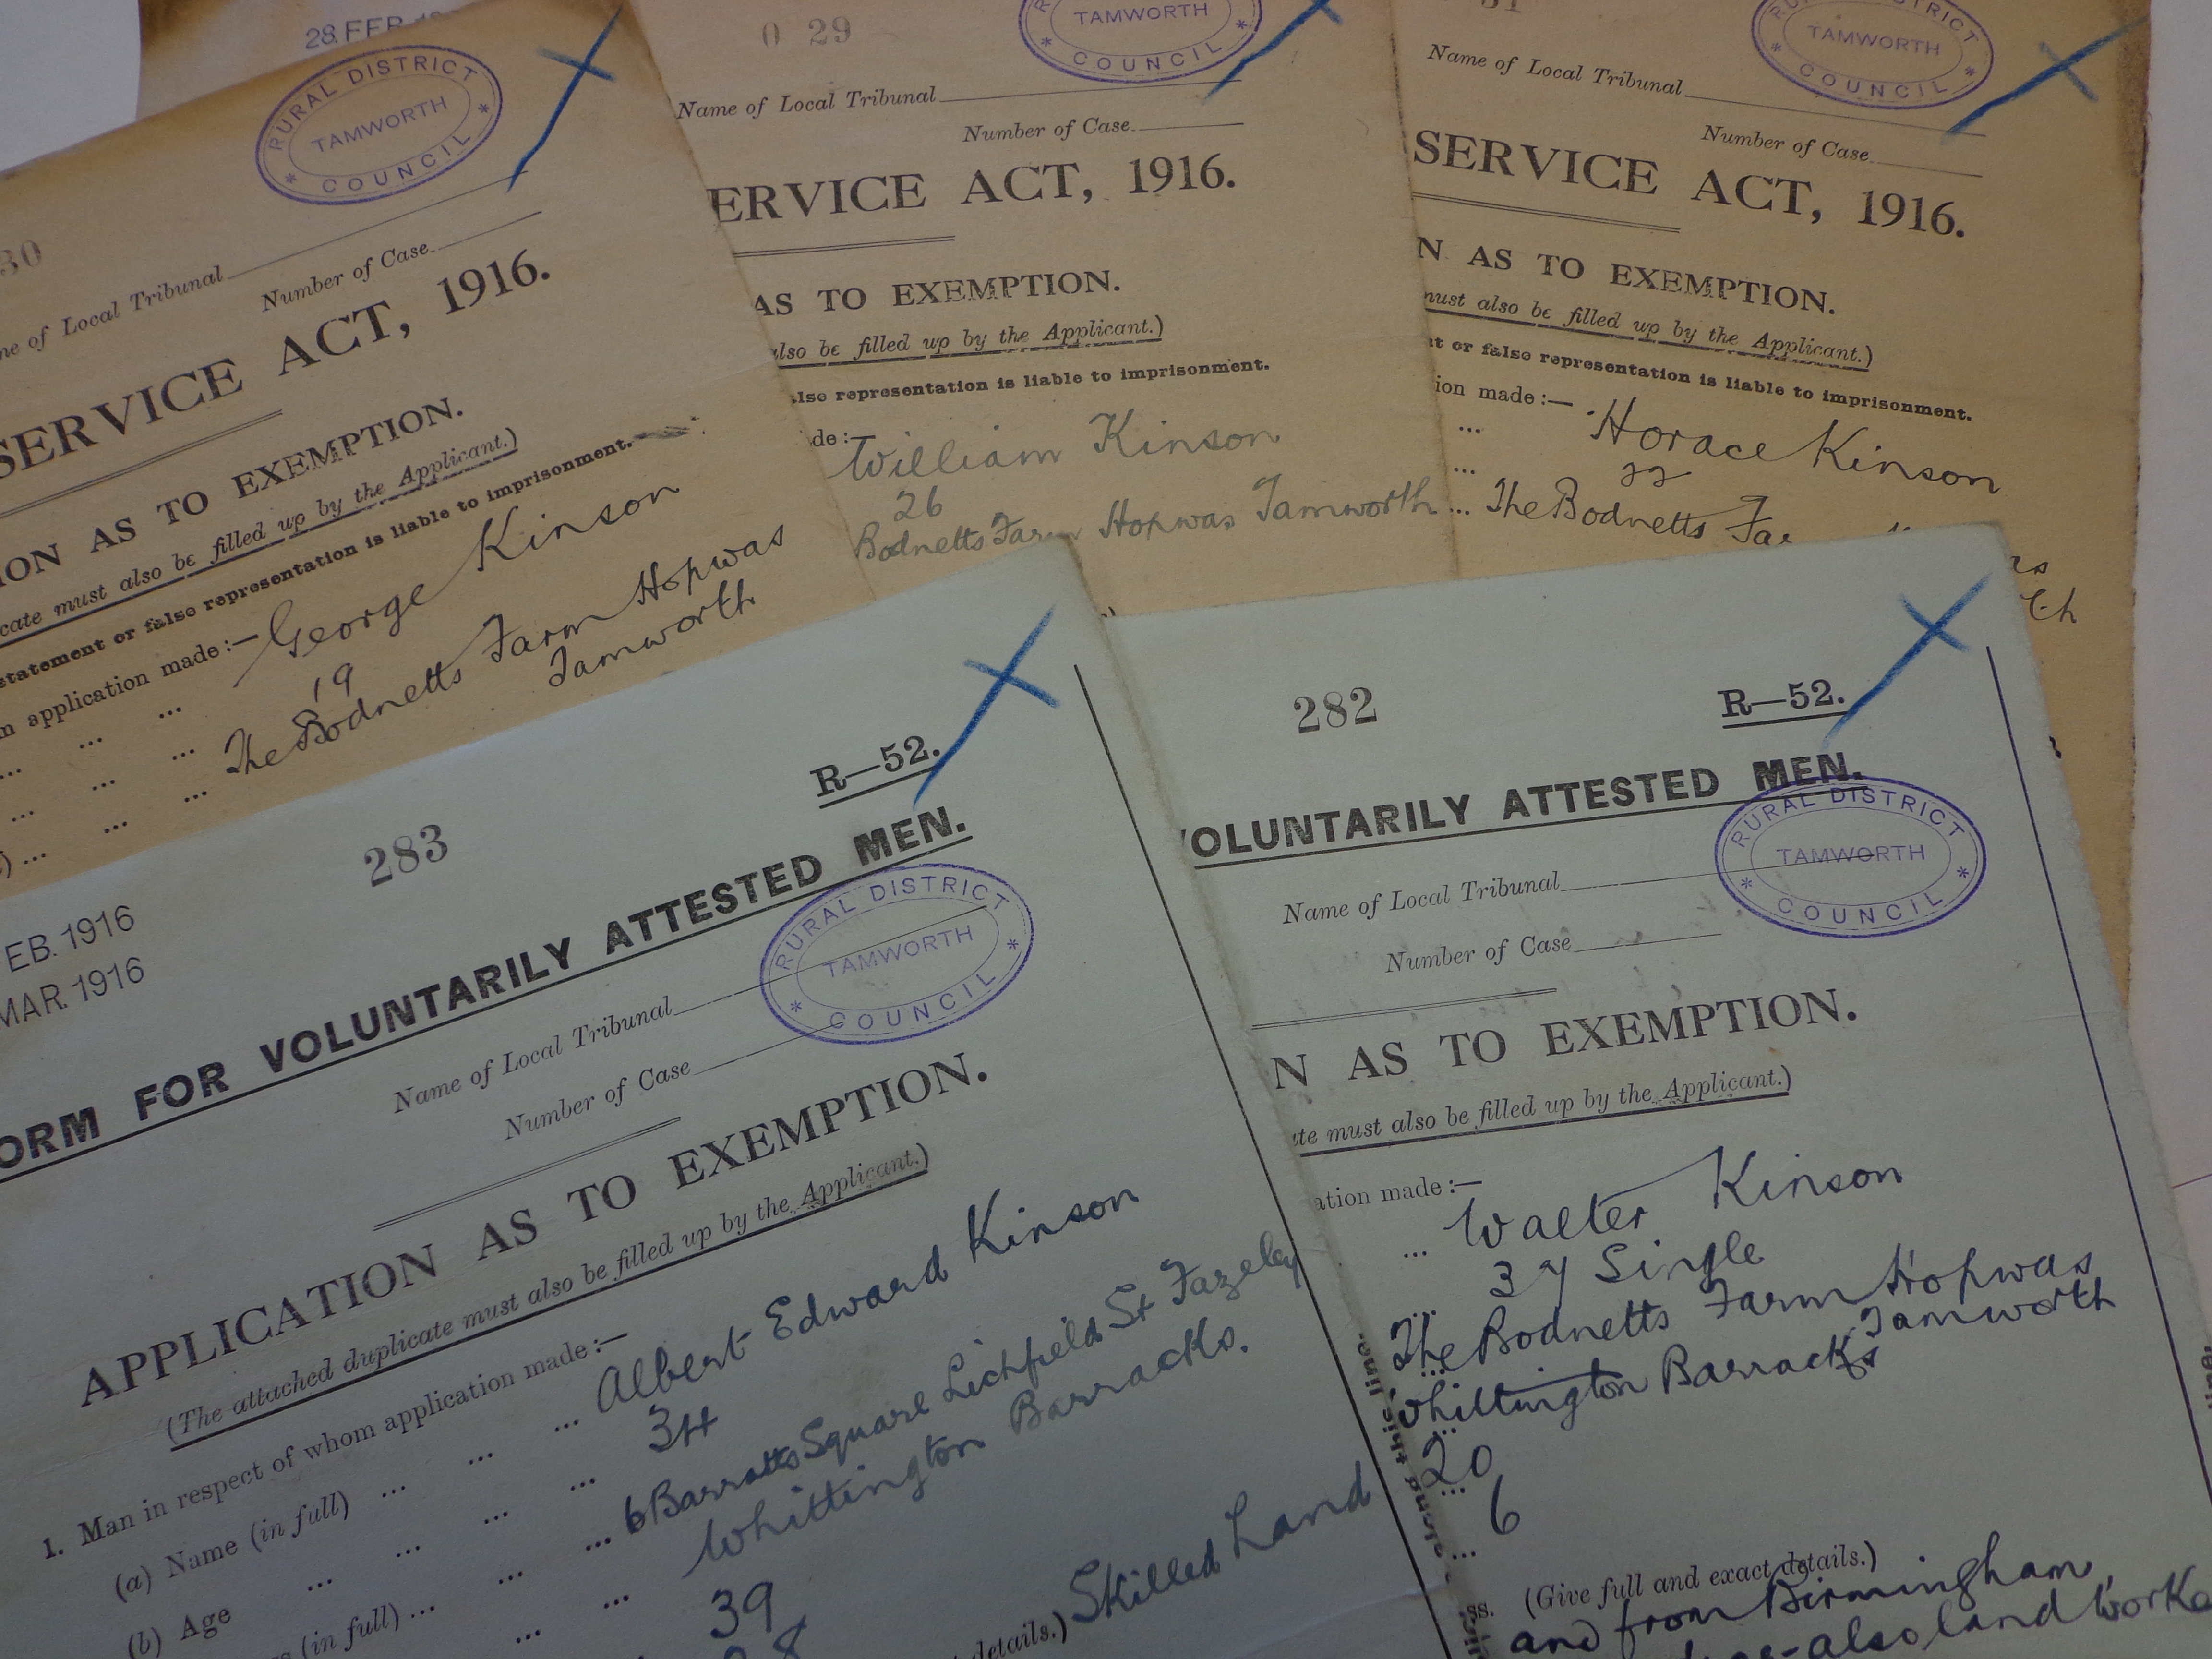 28. FEB
RURAL DISTRICT
TAMWORTH
COUNCIL
30
me of Local Tribunal
Number of Case
SERVICE ACT, 1916.
ION AS TO EXEMPTION.
cate must also be filled up by the Applicant.)
statement or false representation is liable to imprisonment.
m application made:— George Kinson
19
The Bodnetts Farm Hopwas
Tamworth
0 29
TAMWORTH
COUNCIL
Name of Local Tribunal
Number of Case
ERVICE ACT, 1916.
AS TO EXEMPTION.
also be filled up by the Applicant.)
lse representation is liable to imprisonment.
de:— William Kinson
26
Bodnetts Farm Hopwas Tamworth
31
DISTRICT
TAMWORTH
COUNCIL
Name of Local Tribunal
Number of Case
SERVICE ACT, 1916.
N AS TO EXEMPTION.
must also be filled up by the Applicant.)
nt or false representation is liable to imprisonment.
ion made:— Horace Kinson
22
The Bodnetts Fa
283
R—52.
EB. 1916
MAR. 1916
ORM FOR VOLUNTARILY ATTESTED MEN.
RURAL DISTRICT
TAMWORTH
COUNCIL
Name of Local Tribunal
Number of Case
APPLICATION AS TO EXEMPTION.
(The attached duplicate must also be filled up by the Applicant.)
1. Man in respect of whom application made:—
(a) Name (in full) ... Albert Edward Kinson
(b) Age ... 34
(in full) ... 6 Barratts Square Lichfield St Fazeley
Whittington Barracks.
39
details.) Skilled Land
282
R—52.
VOLUNTARILY ATTESTED MEN.
RURAL DISTRICT
TAMWORTH
COUNCIL
Name of Local Tribunal
Number of Case
N AS TO EXEMPTION.
ate must also be filled up by the Applicant.)
ation made:—
Walter Kinson
37 Single
The Bodnetts Farm Hopwas
Tamworth
Whittington Barracks
20
6
ss. (Give full and exact details.)
and from Birmingham,
also land worke
along this line.